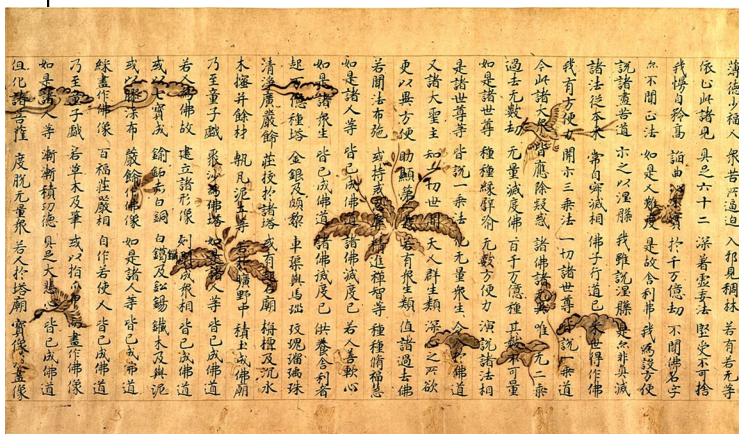 薄德少福人 眾苦所逼迫 入邪見稠林 若有若无等
依止此諸見 具足六十二 深著虛妄法 堅受不可捨
我慢自矜高 諂曲心不實 於千万億劫 不聞佛名字
亦不聞正法 如是人難度 是故舍利弗 我為設方便
說諸盡苦道 示之以涅槃 我雖說涅槃 是亦非真滅
諸法從本來 常自寂滅相 佛子行道已 來世得作佛
我有方便力 開示三乘法 一切諸世尊 皆說一乘道
今此諸大眾 皆應除疑惑 諸佛語无異 唯一无二乘
過去无數劫 无量滅度佛 百千万億種 其數不可量
如是諸世尊 種種緣譬喻 无數方便力 演說諸法相
是諸世尊等 皆說一乘法 化无量眾生 令入於佛道
又諸大聖主 知一切世間 天人群生類 深心之所欲
更以異方便 助顯第一義 若有眾生類 值諸過去佛
若聞法布施 或持戒忍辱 精進禪智等 種種修福慧
如是諸人等 皆已成佛道 諸佛滅度已 若人善軟心
如是諸眾生 皆已成佛道 諸佛滅度已 供養舍利者
起万億種塔 金銀及頗黎 車磲與馬瑙 玫瑰瑠璃珠
清淨廣嚴飾 莊校於諸塔 或有起石廟 栴檀及沉水
木櫁并餘材 甎瓦泥土等 若於曠野中 積土成佛廟
乃至童子戲 聚沙為佛塔 如是諸人等 皆已成佛道
若人為佛故 建立諸形像 刻雕成眾相 皆已成佛道
或以七寶成 鍮鉐赤白銅 白鑞及鉛錫 鐵木及與泥
或以膠漆布 嚴飾作佛像 如是諸人等 皆已成佛道
綵畫作佛像 百福莊嚴相 自作若使人 皆已成佛道
乃至童子戲 若草木及筆 或以指爪甲 而畫作佛像
如是諸人等 漸漸積功德 具足大悲心 皆已成佛道
但化諸菩薩 度脫无量眾 若人於塔廟 寶像及畫像